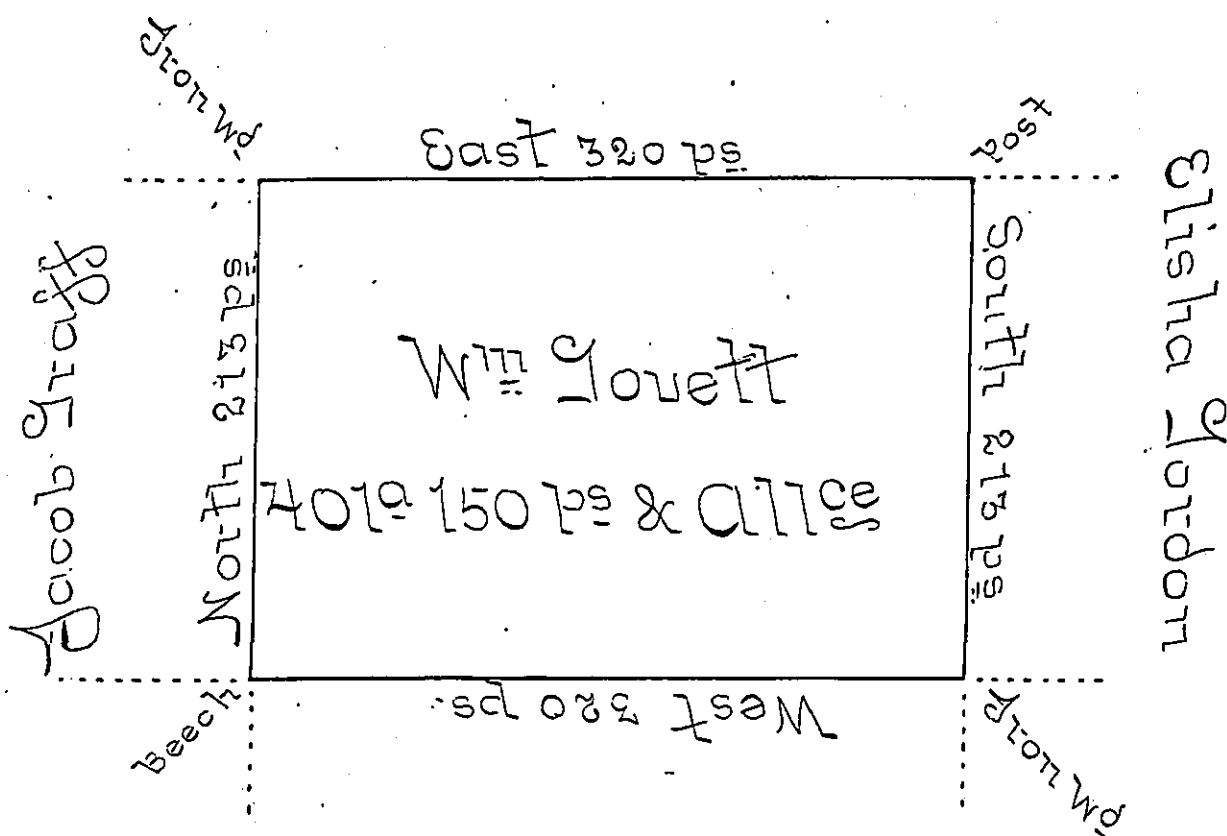 Iron Wd
East 320 ps
Post
Jacob Graff
North 213 ps
Wm Govett
401a 150 ps & Allce
South 213 ps
Elisha Gordon
Beech
West 320 ps.
Iron Wd